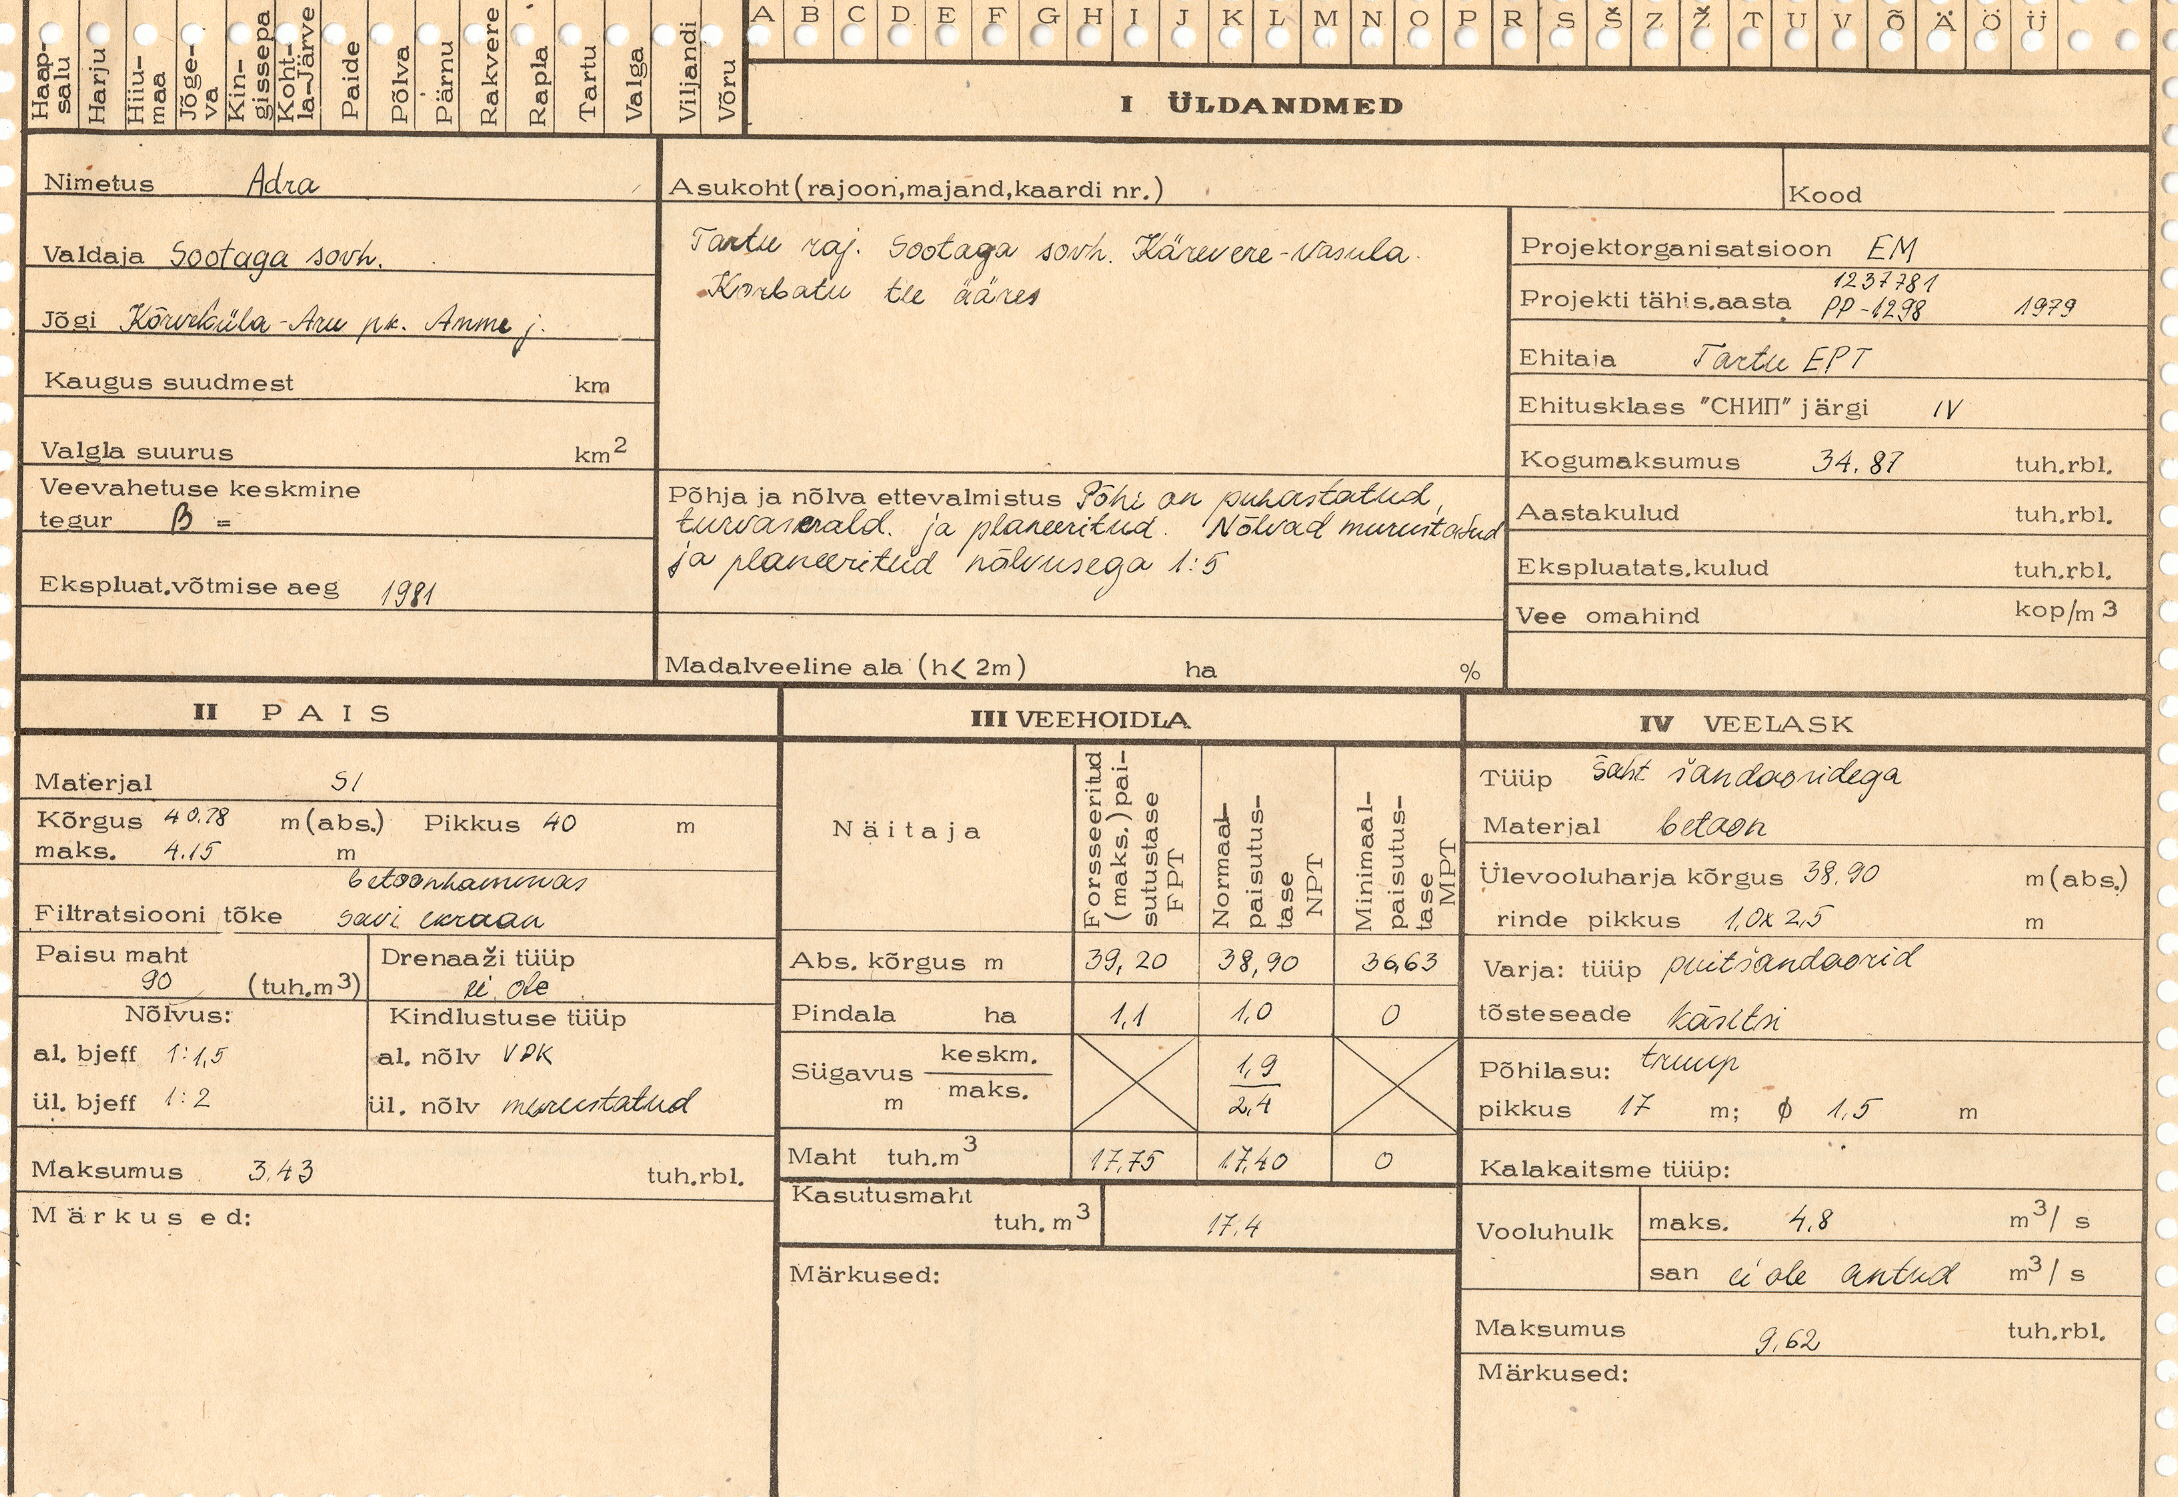 Haap-salu Harju Hiiu-maa Jõge-va Kin-gissepa Koht-la-Järve Paide Põlva Pärnu Rakvere Rapla Tartu Valga Viljandi Võru
A B C D E F G H I J K L M N O P R S Š Z Ž T U V Õ Ä Ö Ü
I ÜLDANDMED
Nimetus Adra
Valdaja Sootaga sovh.
Jõgi Kõrveküla-Aru pk. Amme j.
Kaugus suudmest km
Valgla suurus km2
Veevahetuse keskmine
tegur β =
Ekspluat.võtmise aeg 1981
Asukoht (rajoon,majand,kaardi nr.)
Tartu raj. Sootaga sovh. Kärevere-Vasula
Korbatu tee ääres
Põhja ja nõlva ettevalmistus Põhi on puhastatud,
turvas erald. ja planeeritud. Nõlvad murustatud
ja planeeritud nõlvusega 1:5
Madalveeline ala (h< 2m) ha %
Kood
Projektorganisatsioon EM
1237781
Projekti tähis.aasta PP-1298 1979
Ehitaja Tartu EPT
Ehitusklass "СНИП" järgi IV
Kogumaksumus 34.87 tuh.rbl.
Aastakulud tuh.rbl.
Ekspluatats.kulud tuh.rbl.
Vee omahind kop/m3
II PAIS
Materjal S1
Kõrgus 40.78 m(abs.) Pikkus 40 m
maks. 4.15 m
betoonhammas
Filtratsiooni tõke savi ekraan
Paisu maht
90 (tuh.m3)
Drenaaži tüüp
ei ole
Nõlvus:
al. bjeff 1:1,5
ül. bjeff 1:2
Kindlustuse tüüp
al. nõlv VPK
ül. nõlv murustatud
Maksumus 3.43 tuh.rbl.
Märkused:
III VEEHOIDLA
Näitaja
Forsseeritud (maks.) pai-sutustase FPT
Normaal-paisutus-tase NPT
Minimaal-paisutus-tase MPT
Abs. kõrgus m 39,20 38,90 36,63
Pindala ha 1,1 1,0 0
Sügavus m keskm. 1,9
maks. 2,4
Maht tuh.m3 17,75 17,40 0
Kasutusmaht
tuh. m3 17,4
Märkused:
IV VEELASK
Tüüp šaht šandooridega
Materjal betoon
Ülevooluharja kõrgus 38,90 m(abs.)
rinde pikkus 1,0x2,5 m
Varja: tüüp puitšandoorid
tõsteseade käsitsi
Põhilasu: truup
pikkus 17 m; ϕ 1,5 m
Kalakaitsme tüüp:
Vooluhulk
maks. 4,8 m3/s
san ei ole antud m3/s
Maksumus 9,62 tuh.rbl.
Märkused: